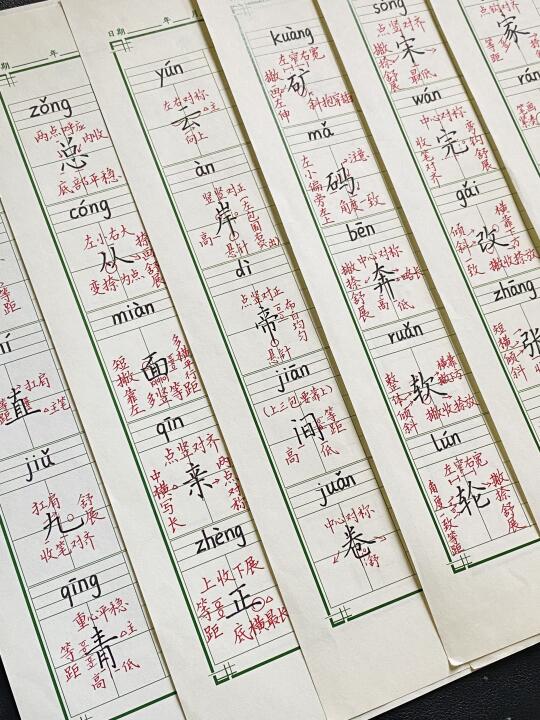 日期
年
zǒng
两点呼应
内收
总
底部平稳
cóng
左小右大
从
捺画舒展
变捺为点
miàn
短撇靠左
面
多横平行
多竖等距
qīn
点竖对齐
中横写长
亲
两点对称
zhèng
上收下展
等距
正
底横最长
直
扛肩
主笔
jiǔ
扛肩
舒展
九
收笔对齐
qīng
重心平稳
等距
青
主
高低
日期
年
yún
左右对称
云
主
向上
àn
竖竖对正
岸
高
悬针
dì
点竖对正
帝
布白均匀
悬针
jiān
(上三包要靠上)
间
等距
高
低
juǎn
中心对称
卷
舒
kuàng
左窄右宽
撇画左伸
矿
斜抱穿插
mǎ
左小偏旁左上
码
注意
角度一致
bēn
中心对称
撇捺舒展
奔
高低
ruǎn
整体倾斜
软
横靠
撇收捺放
lún
左窄右宽
角度一致
等距
轮
撇捺舒展
sòng
点竖对齐
撇捺舒展
宋
最低
wán
中心对称
收笔对齐
完
弯钩舒展
gǎi
倾斜一致
改
横靠上方
撇收捺放
zhāng
短横倾斜
张
等
家